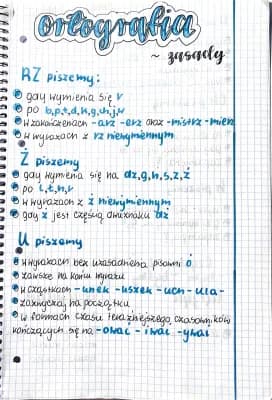 ortografia
~ zasady
RZ piszemy:
gdy wymienia się r
po b,p,t,d,k,g,ch,j,w
w zakończeniach -arz -erz oraz -mistrz -mierz
w wyrazach z rz niewymiennym
Ż piszemy
gdy wymienia się na dz,g,h,s,z,ź
po l,ł,n,r
w wyrazach z ż niewymiennym
gdy ż jest częścią dwuznaku dż
U piszemy
w wyrazach bez uzasadnienia pisowni ó
zawsze na końcu wyrazu
w cząstkach -unek -uszek -uch -ula-
zazwyczaj na początku
w formach czasu teraźniejszego czasowników
kończących się na -ować -iwać -ywać